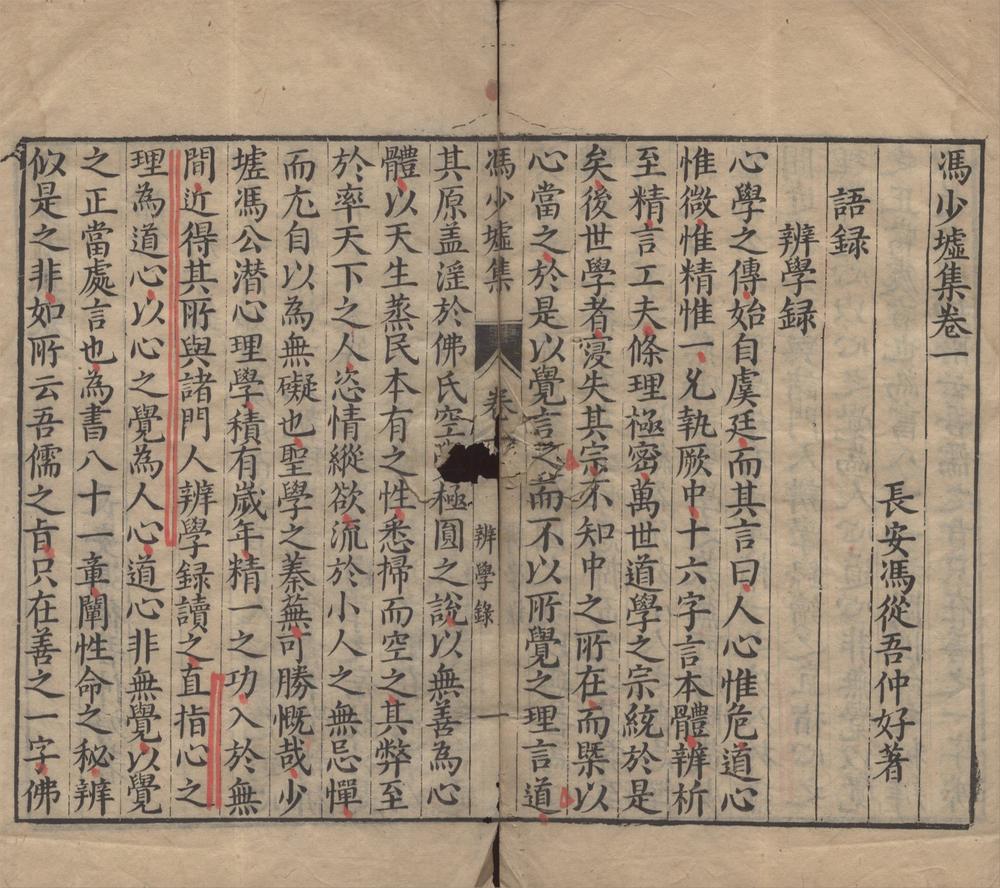 馮少墟集卷一
長安馮從吾仲好著
語録
辨學録
心學之傳始自虞廷而其言曰人心惟危道心
惟微惟精惟一允執厥中十六字言本體辨析
至精言工夫條理極密萬世道學之宗統於是
矣後世學者寖失其宗不知中之所在而槩以
心當之於是以覺言之而不以所覺之理言道
馮少墟集 卷一 辨學錄 一
其原盖滛於佛氏空極圓之說以無善為心
體以天生蒸民本有之性悉掃而空之其弊至
於率天下之人恣情縱欲流於小人之無忌憚
而尤自以為無礙也聖學之蓁蕪可勝慨哉少
墟馮公潜心理學積有歲年精一之功入於無
間近得其所與諸門人辨學録讀之直指心之
理為道心以心之覺為人心道心非無覺以覺
之正當處言也為書八十一章闡性命之秘辨
似是之非如所云吾儒之旨只在善之一字佛